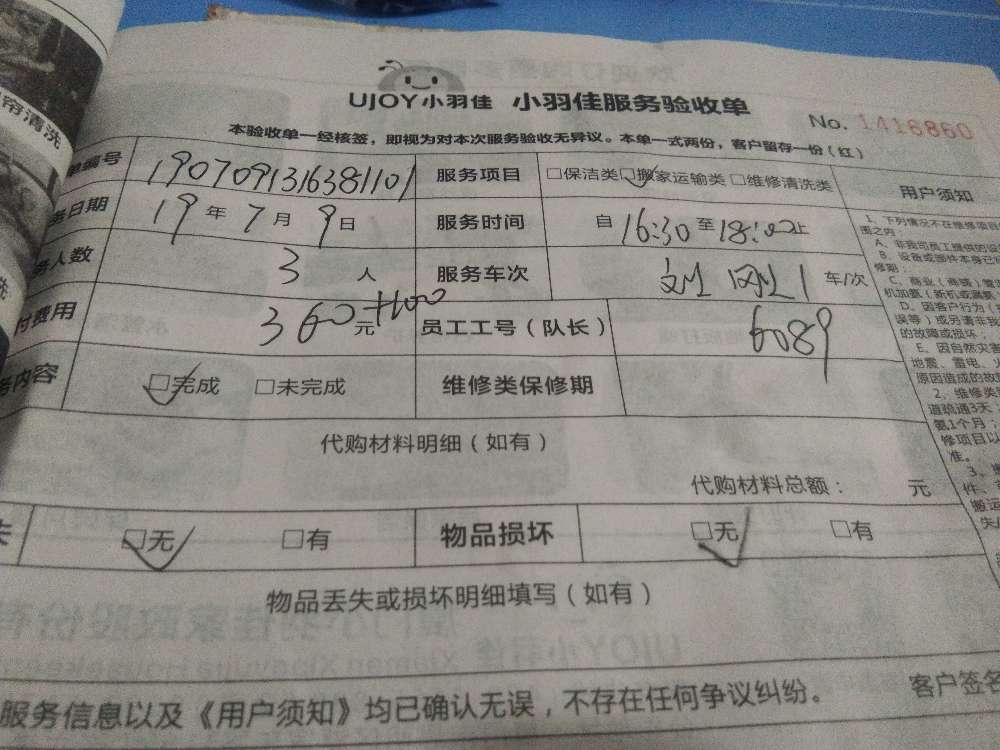 帘清洗
UJOY小羽佳 小羽佳服务验收单
No. 1416860
本验收单一经核签，即视为对本次服务验收无异议。本单一式两份，客户留存一份（红）
单编号 1907091316381101 服务项目 □保洁类 ☑搬家运输类 □维修清洗类
务日期 19年7月9日 服务时间 自16:30至18:00止
务人数 3人 服务车次 刘刚1车/次
付费用 360元+100 员工工号（队长） 6089
务内容 ☑完成 □未完成 维修类保修期
代购材料明细（如有）
代购材料总额： 元
失 ☑无 □有 物品损坏 ☑无 □有
物品丢失或损坏明细填写（如有）
服务信息以及《用户须知》均已确认无误，不存在任何争议纠纷。 客户签名
用户须知
1、下列情况不在维修项目
围之内
A、非我司员工提供的
B、设备或部件本身已
修期；
C、商业（商铺）
机加氨（新机或漏氨
D、因客户行为（
误等）或另请非我
的故障或损坏；
E、因自然灾害
地震、雷电、火
原因造成的故
2、维修类
道疏通3天；
氨1个月；
修项目以
准。
3、
件、
搬运
失